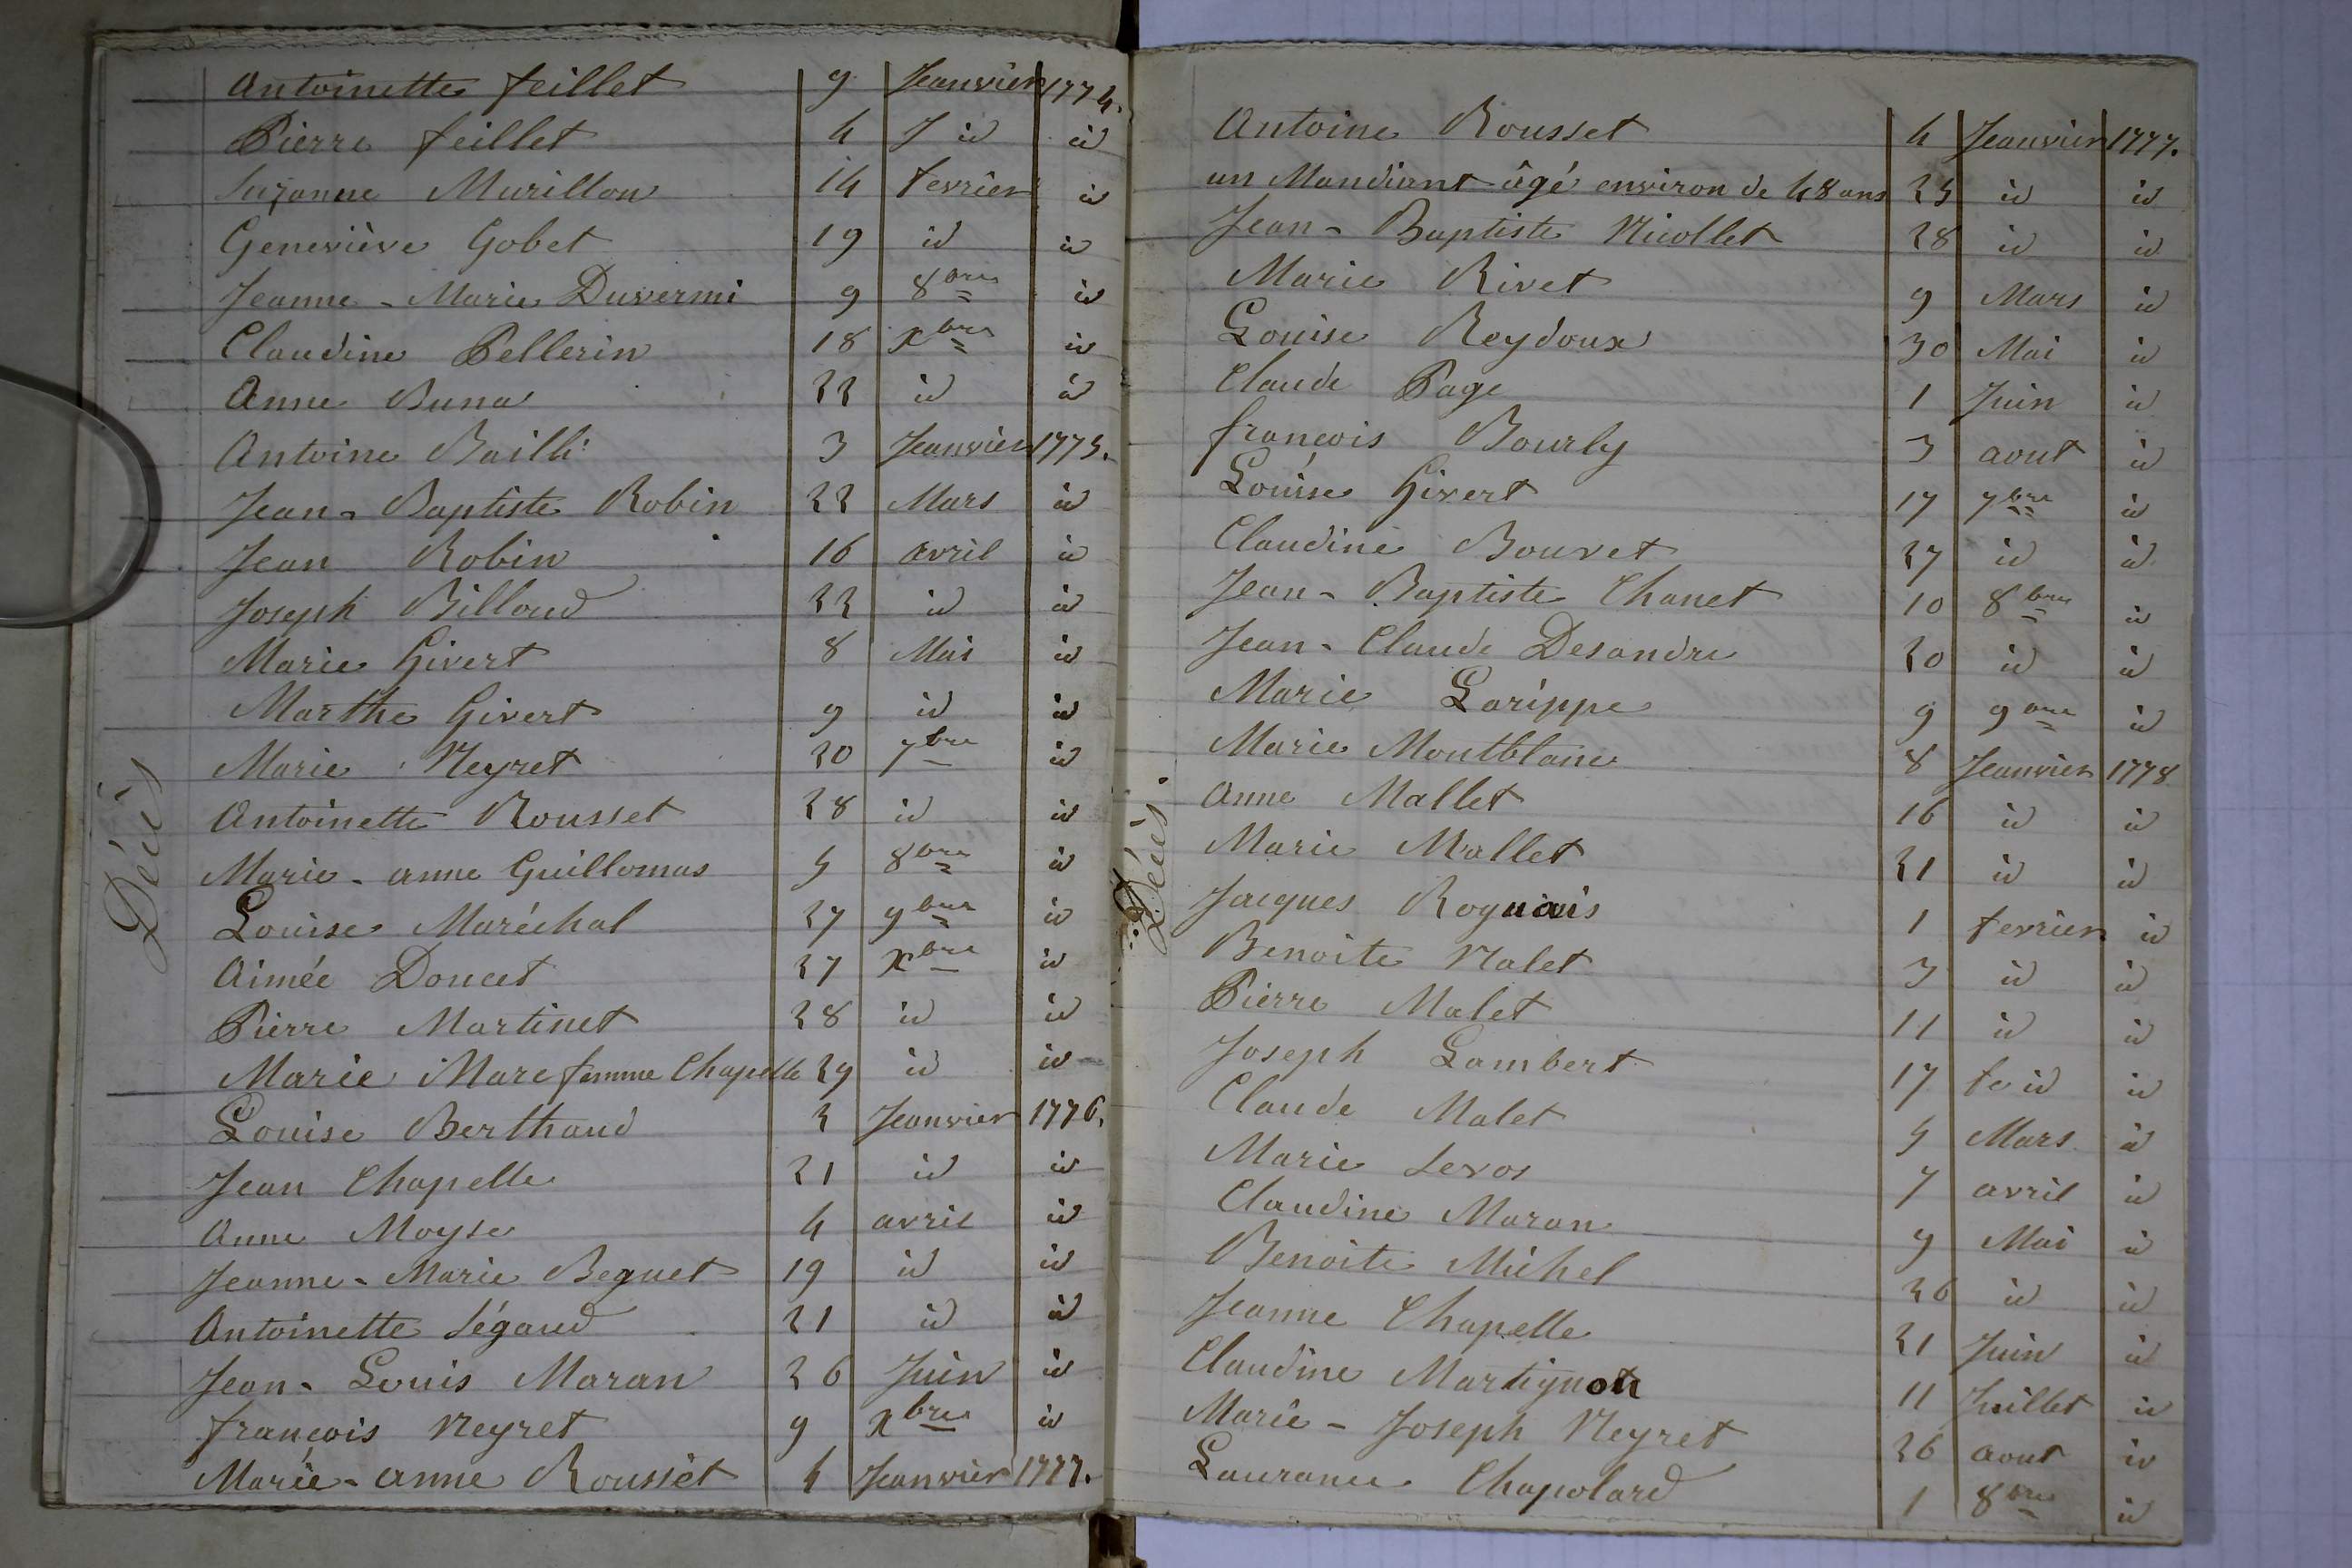 Décès
Antoinette feillet 9 Jeanvier 1774.
Pierre feillet 4 J id id
Suzanne Murillon 14 fevrier id
Geneviève Gobet 19 id id
Jeanne - Marie Duvermi 9 8bre id
Claudine Pellerin 18 xbre id
Anne Buna 22 id id
Antoine Bailli 3 Jeanvier 1775.
Jean - Baptiste Robin 22 Mars id
Jean Robin 16 avril id
Joseph Billoud 22 id id
Marie Givert 8 Mai id
Marthe Givert 9 id id
Marie Neyret 20 7bre id
Antoinette Rousset 28 id id
Marie - anne Guillomas 5 8bre id
Louise Maréchal 27 9bre id
Aimée Doucet 27 xbre id
Pierre Martinet 28 id id
Marie Marc femme Chapelle 29 id id
Louise Berthaud 2 Jeanvier 1776.
Jean Chapelle 21 id id
Anne Moyse 4 avril id
Jeanne - Marie Beguet 19 id id
Antoinette Ségaud 21 id id
Jean - Louis Maran 26 Juin id
françois Neyret 9 xbre id
Marie - anne Rousset 4 Jeanvier 1777.
Décès.
Antoine Rousset 4 Jeanvier 1777.
un Mandiant âgé environ de 48 ans 25 id id
Jean - Baptiste Nicollet 28 id id
Marie Rivet 9 Mars id
Louise Reydoux 30 Mai id
Claude Page 1 Juin id
françois Bourly 3 aout id
Louise Givert 17 7bre id
Claudine Bouvet 27 id id
Jean - Baptiste Chanet 10 8bre id
Jean - Claude Desandre 20 id id
Marie Larippe 9 9bre id
Marie Montblanc 8 Jeanvier 1778
Anne Mallet 16 id id
Marie Mallet 21 id id
Jacques Roguais 1 fevrier id
Benoite Malet 3 id id
Pierre Malet 11 id id
Joseph Lambert 17 fe id id
Claude Malet 5 Mars id
Marie Sevos 7 avril id
Claudine Maran 9 Mai id
Benoite Michel 26 id id
Jeanne Chapelle 21 Juin id
Claudine Martignon 11 Juillet id
Marie - Joseph Neyret 26 aout id
Laurance Chapolard 1 8bre id